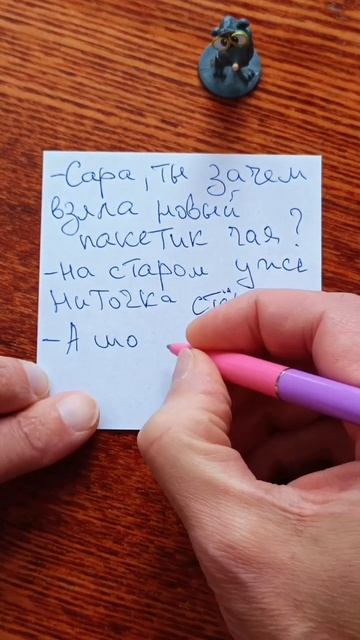 -Сара, ты зачем
взяла новый
пакетик чая?
-на старом уже
ниточка
- А шо